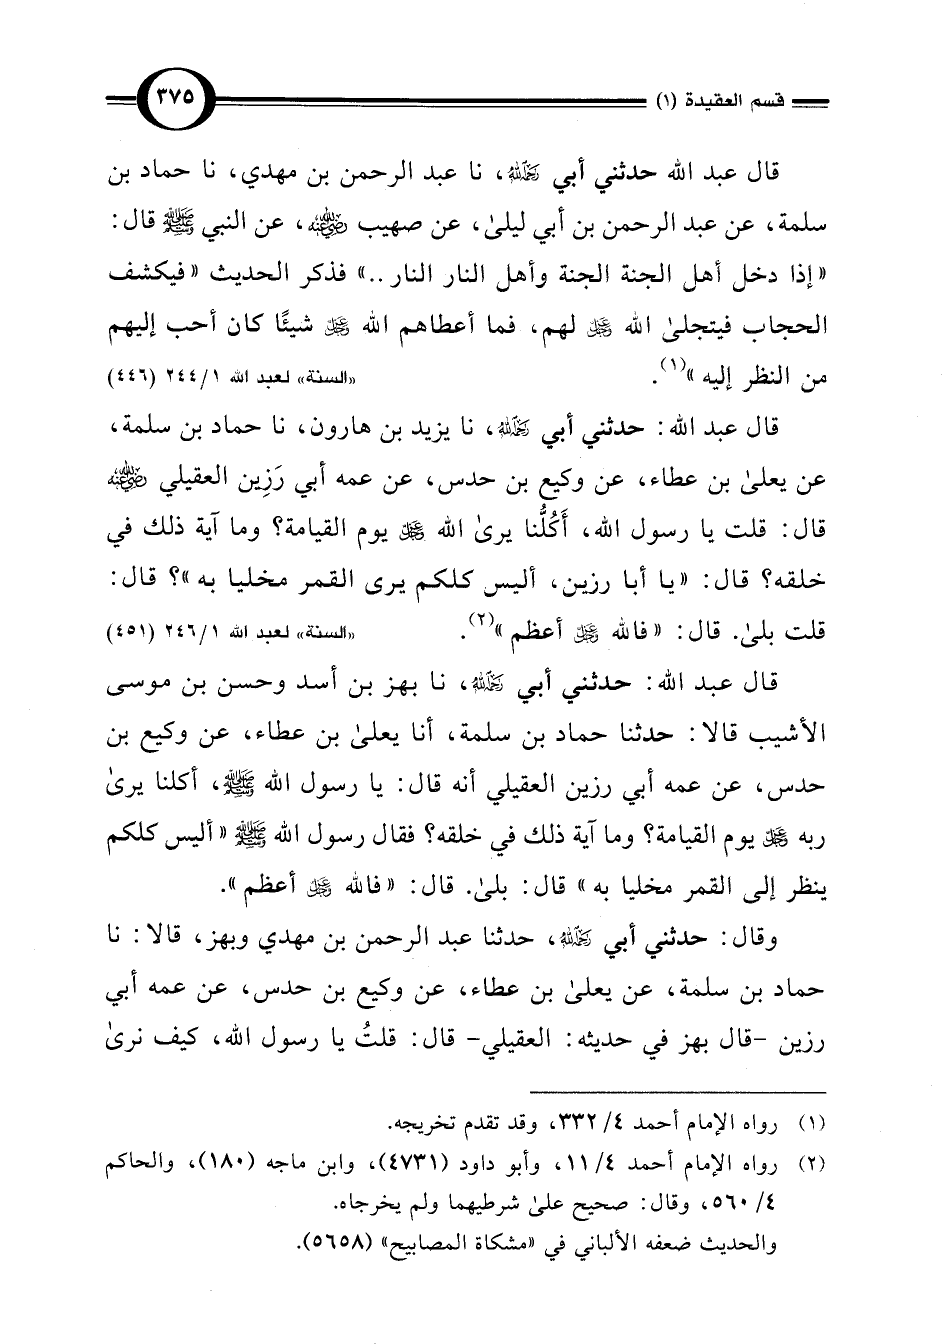 قسم العقيدة (١)
٣٧٥
قال عبد الله حدثني أبي رحمه الله، نا عبد الرحمن بن مهدي، نا حماد بن
سلمة، عن عبد الرحمن بن أبي ليلىٰ، عن صهيب رضي الله عنه، عن النبي ﷺ قال:
«إذا دخل أهل الجنة الجنة وأهل النار النار ..» فذكر الحديث «فيكشف
الحجاب فيتجلىٰ الله ﷿ لهم، فما أعطاهم الله ﷿ شيئًا كان أحب إليهم
من النظر إليه»(١). «السنة» لعبد الله ١/ ٢٤٤ (٤٤٦)
قال عبد الله: حدثني أبي رحمه الله، نا يزيد بن هارون، نا حماد بن سلمة،
عن يعلىٰ بن عطاء، عن وكيع بن حدس، عن عمه أبي رَزِين العقيلي رضي الله عنه
قال: قلت يا رسول الله، أَكُلُّنا يرىٰ الله ﷿ يوم القيامة؟ وما آية ذلك في
خلقه؟ قال: «يا أبا رزين، أليس كلكم يرى القمر مخليا به»؟ قال:
قلت بلىٰ. قال: «فالله ﷿ أعظم»(٢). «السنة» لعبد الله ١/ ٢٤٦ (٤٥١)
قال عبد الله: حدثني أبي رحمه الله، نا بهز بن أسد وحسن بن موسى
الأشيب قالا: حدثنا حماد بن سلمة، أنا يعلىٰ بن عطاء، عن وكيع بن
حدس، عن عمه أبي رزين العقيلي أنه قال: يا رسول الله ﷺ، أكلنا يرىٰ
ربه ﷿ يوم القيامة؟ وما آية ذلك في خلقه؟ فقال رسول الله ﷺ «أليس كلكم
ينظر إلى القمر مخليا به» قال: بلىٰ. قال: «فالله ﷿ أعظم».
وقال: حدثني أبي رحمه الله، حدثنا عبد الرحمن بن مهدي وبهز، قالا: نا
حماد بن سلمة، عن يعلىٰ بن عطاء، عن وكيع بن حدس، عن عمه أبي
رزين -قال بهز في حديثه: العقيلي- قال: قلتُ يا رسول الله، كيف نرىٰ
(١) رواه الإمام أحمد ٤/ ٣٣٢، وقد تقدم تخريجه.
(٢) رواه الإمام أحمد ٤/ ١١، وأبو داود (٤٧٣١)، وابن ماجه (١٨٠)، والحاكم
٤/ ٥٦٠، وقال: صحيح علىٰ شرطيهما ولم يخرجاه.
والحديث ضعفه الألباني في «مشكاة المصابيح» (٥٦٥٨).